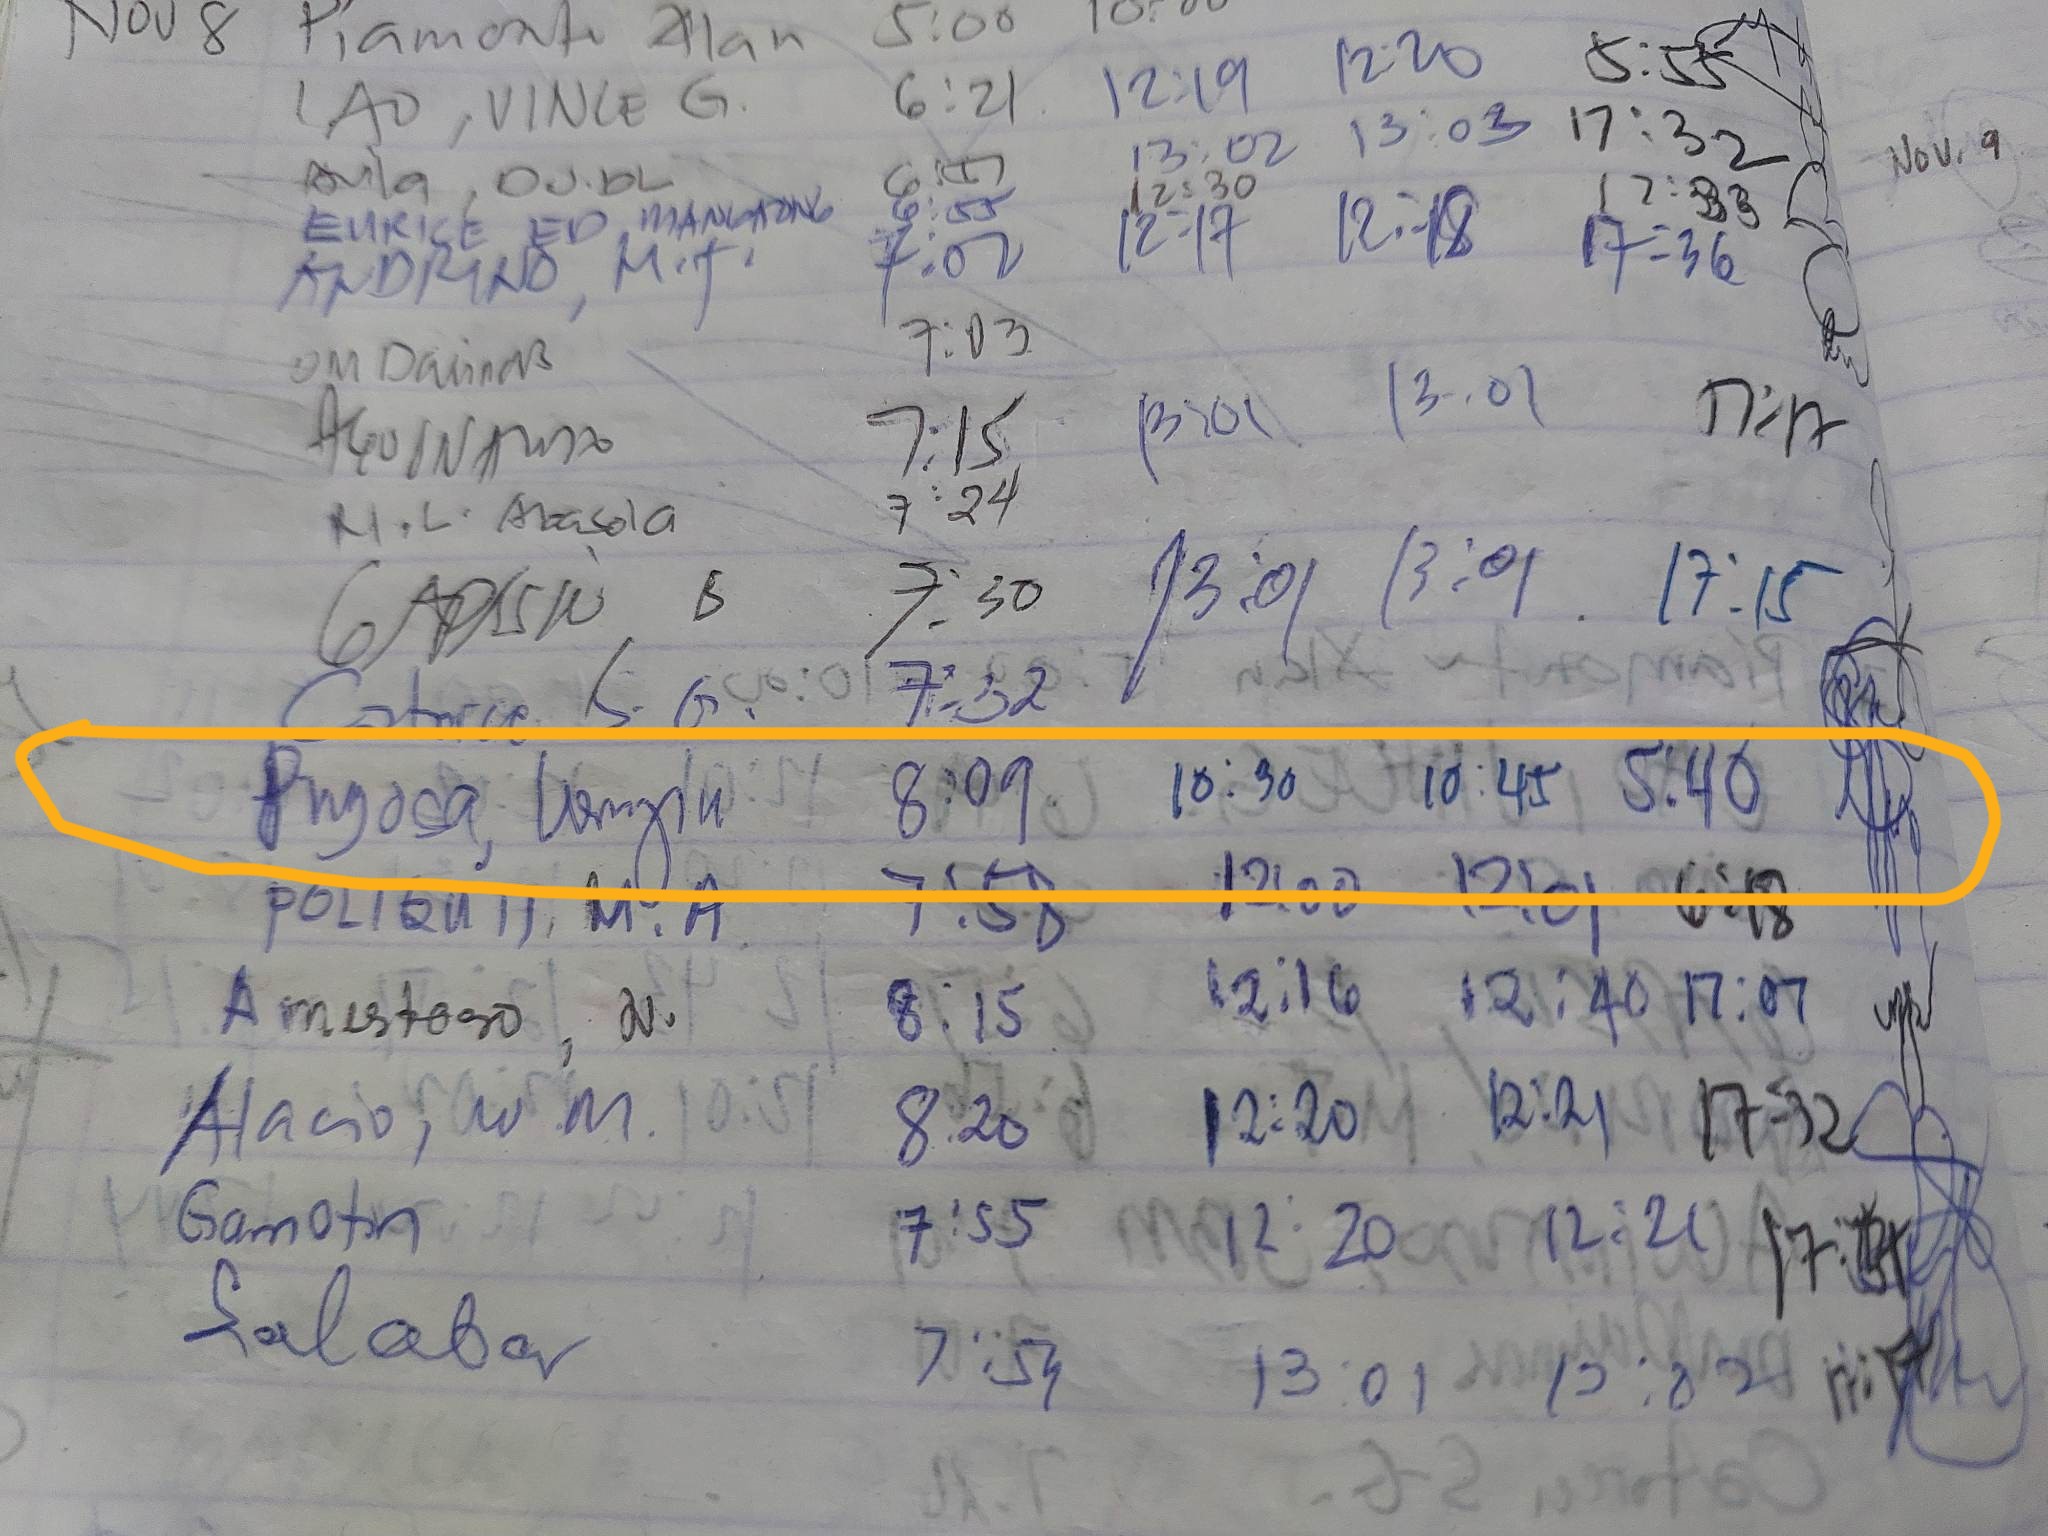 Nov 8 Piamonte Alan 5:00 10:00
LAO, VINCE G. 6:21 12:19 12:20 5:55
Avila, 13:02 13:03 17:32
Nov. 9
EURICE ED 6:55 12:30 17:33
ANDRINO, M.J. 7:02 12:17 12:18 17:36
7:03
AGUINALDO 7:15 13:01 13:01 17:17
M.L. Abasola 7:24
B 7:30 13:01 13:01 17:15
Catorce S. G. 7:32
Pugosa, 8:09 10:30 10:45 5:40
POLIQUIT, M. A 7:58 12:00 12:01 6:18
Amistoso, N. 8:15 12:16 12:40 17:07
Alacio, W.M. 8:20 12:20 12:21 17:32
Gamotin 7:55 12:20 12:21
Salabar 7:54 13:01 13:02